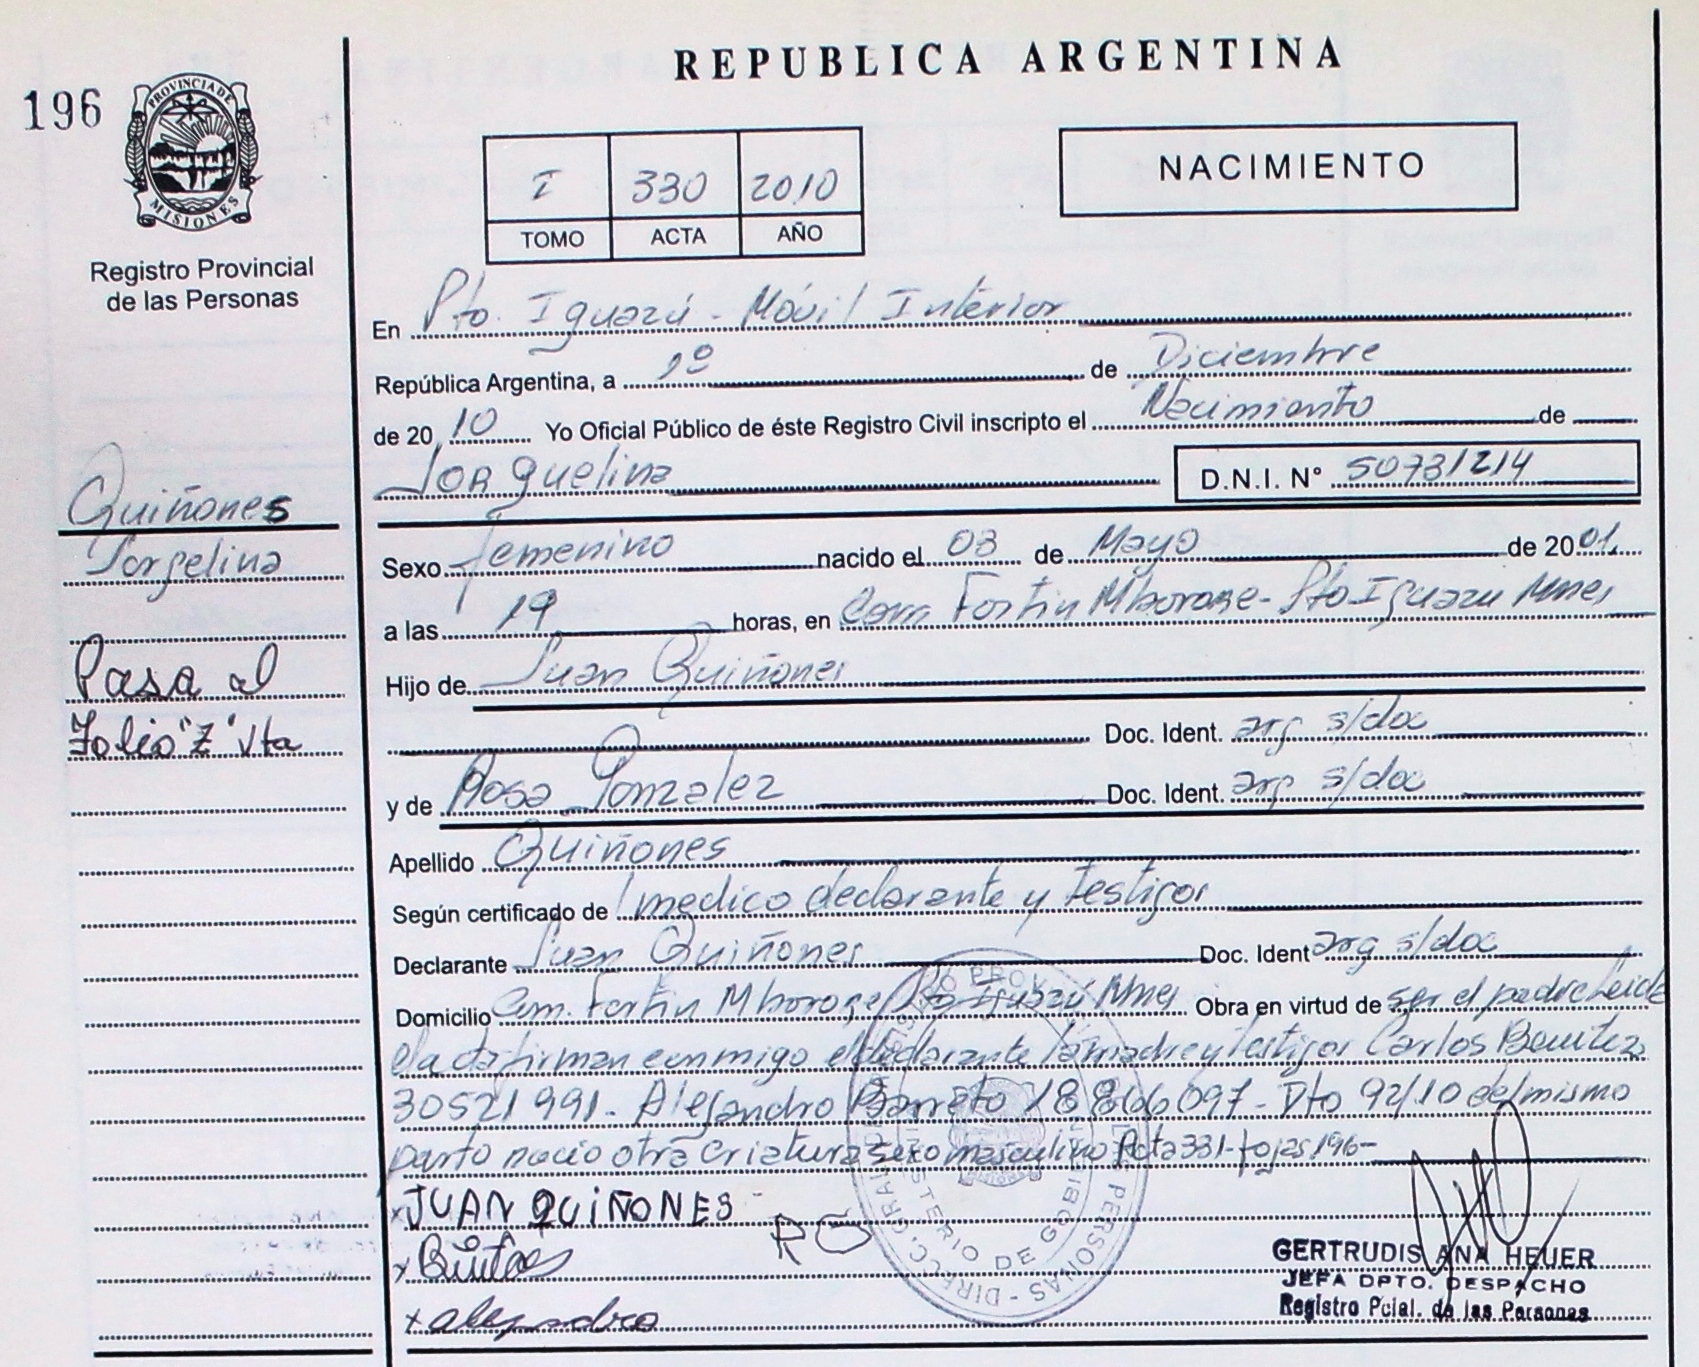 REPUBLICA ARGENTINA
196
PROVINCIA DE
MISIONES
Registro Provincial
de las Personas
I 330 2010
TOMO ACTA AÑO
NACIMIENTO
En Pto. Iguazú - Móvil Interior
República Argentina, a 1º de Diciembre
de 20 10 Yo Oficial Público de éste Registro Civil inscripto el Nacimiento de
Jorguelina D.N.I. Nº 50731214
Quiñones
Jorgelina
Pasa al
Folio "Z" Vta
Sexo femenino nacido el 03 de Mayo de 20 01
a las 19 horas, en Com Fortin Mborore - Pto Iguazu Mnes
Hijo de Juan Quiñones
Doc. Ident. arg s/doc
y de Rosa Gonzalez Doc. Ident. arg s/doc
Apellido Quiñones
Según certificado de medico declarante y testigos
Declarante Juan Quiñones Doc. Ident arg s/doc
Domicilio Com. Fortin Mborore Pto Iguazú Mnes Obra en virtud de ser el padre Leida
el acta firman conmigo el declarante la madre y testigos Carlos Benitez
30521991 - Alejandro Barreto 18866097 - Dto 92/10 del mismo
parto nacio otra criatura sexo masculino Acta 331 - fojas 196 -
x JUAN QUIÑONES
RO
x
x alejandro
PERSONAS - DIRECC. GRAL.
MINISTERIO DE GOBIERNO
GERTRUDIS ANA HEUER
JEFA DPTO. DESPACHO
Registro Pcial. de las Personas